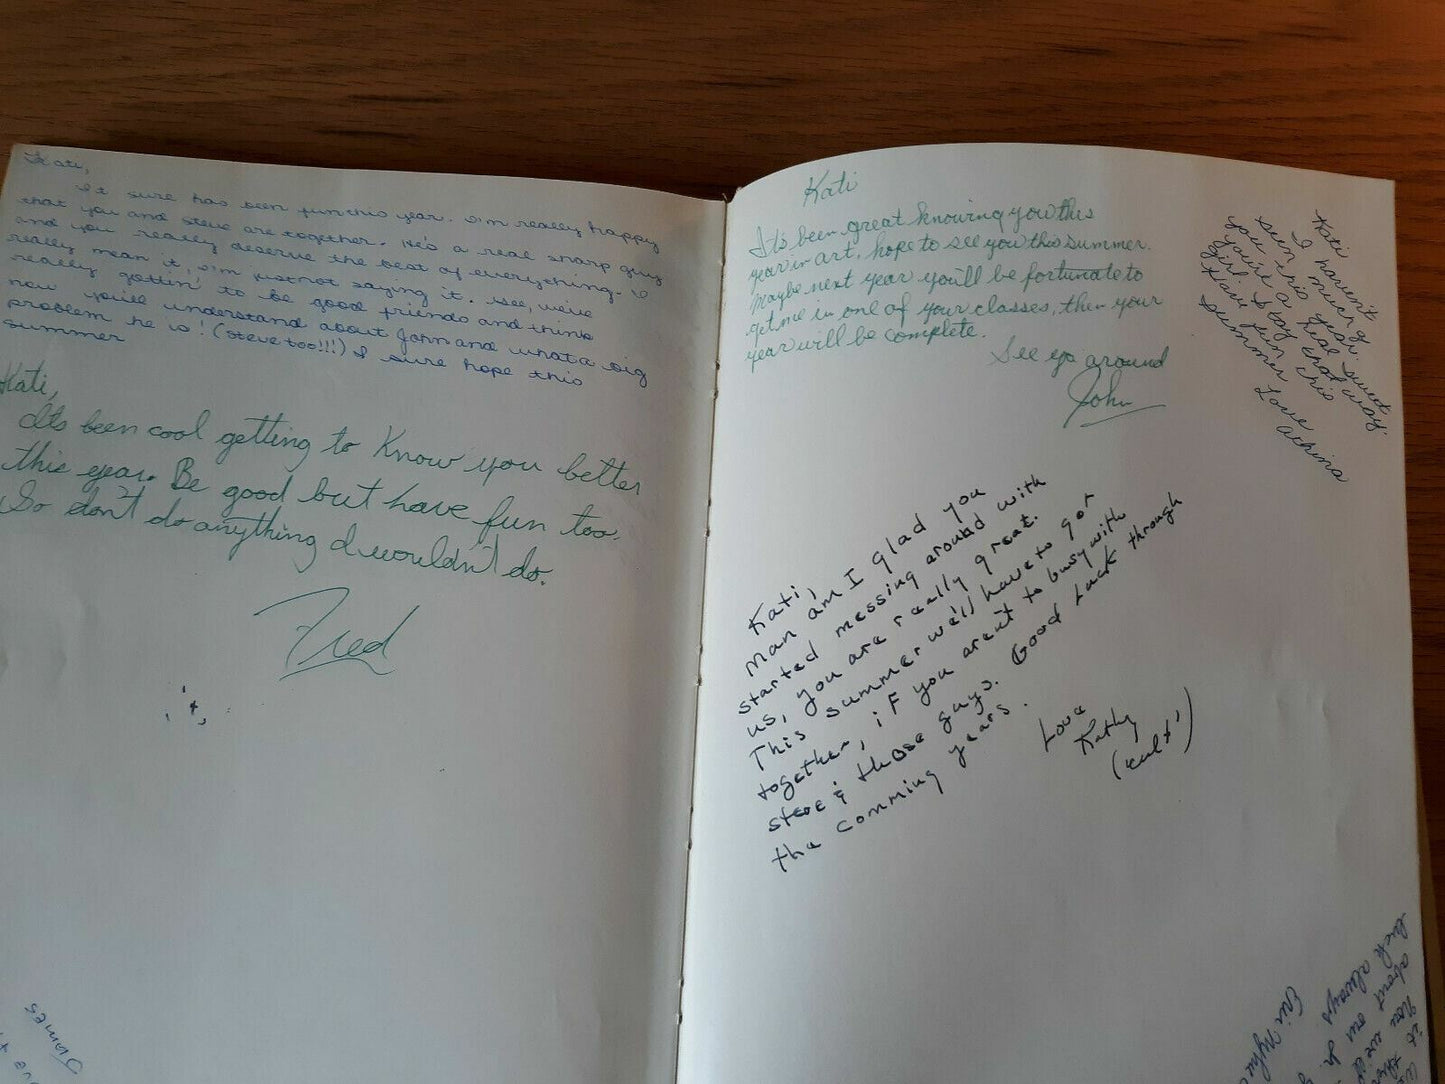 Kati,
It sure has been fun this year. I'm really happy
that you and Steve are together. He's a real sharp guy
and you really deserve the best of everything. I
really mean it, I'm just not saying it. See, we're
really gettin' to be good friends and think
now you'll understand about John and what a big
problem he is! (Steve too!!!) I sure hope this
summer
Kati,
It's been cool getting to Know you better
this year. Be good but have fun too.
So don't do anything I wouldn't do.
Fred
James
Kati
It's been great knowing you this
year in art, hope to see you this summer.
Maybe next year you'll be fortunate to
get me in one of your classes, then your
year will be complete.
See ya around
John
Kati
I haven't
seen much of
you this year.
you're a real sweet
girl. Stay that way.
Have fun this
summer
Love
Kati,
Man am I glad you
started messing around with
us, you are really great.
This summer we'll have to get
together, if you arent to busy with
steve & those guys. Good Luck through
the comming years.
Love
Kathy
luck always
about